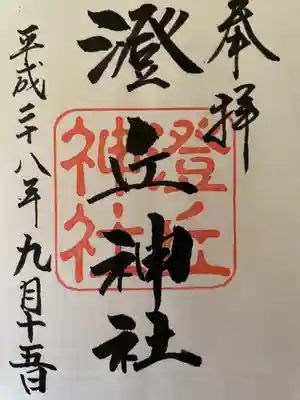 奉拝
澄丘神社
澄丘
神社
平成二十八年九月十五日